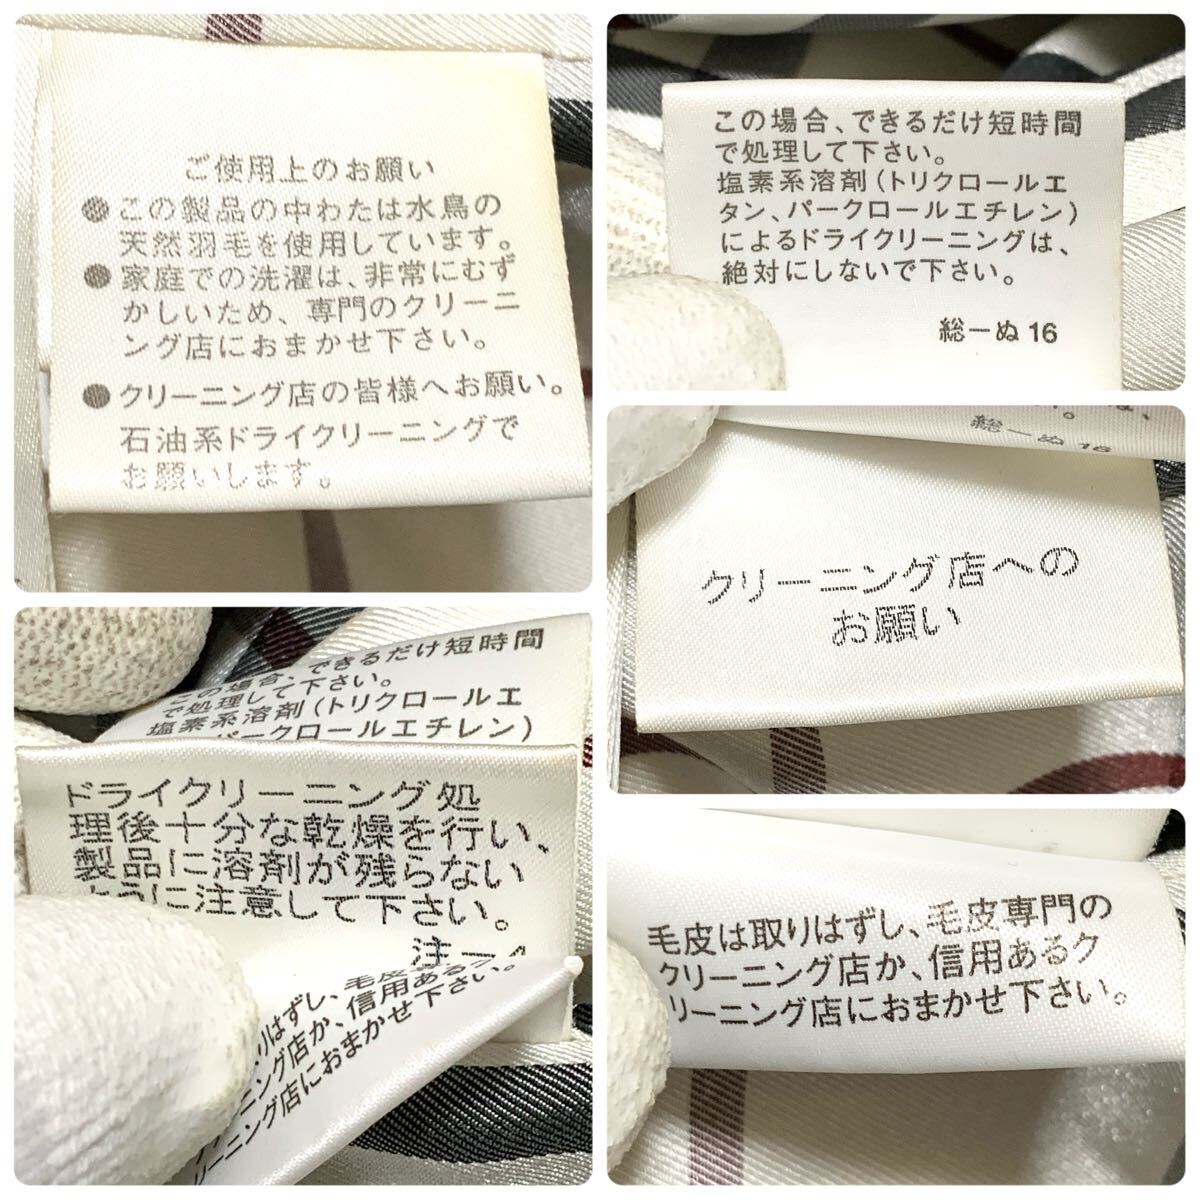 ご使用上のお願い
●この製品の中わたは水鳥の
天然羽毛を使用しています。
●家庭での洗濯は、非常にむず
かしいため、専門のクリーニ
ング店におまかせ下さい。
●クリーニング店の皆様へお願い。
石油系ドライクリーニングで
お願いします。
この場合、できるだけ短時間
で処理して下さい。
塩素系溶剤(トリクロールエ
タン、パークロールエチレン)
によるドライクリーニングは、
絶対にしないで下さい。
総一ぬ16
総一ぬ16
クリーニング店への
お願い
この場合、できるだけ短時間
で処理して下さい。
塩素系溶剤(トリクロールエ
パークロールエチレン)
ドライクリーニング処
理後十分な乾燥を行い、
製品に溶剤が残らない
ように注意して下さい。
注一
りはずし、毛皮
ング店か、信用あるク
ーニング店におまかせ下さい。
毛皮は取りはずし、毛皮専門の
クリーニング店か、信用あるク
リーニング店におまかせ下さい。